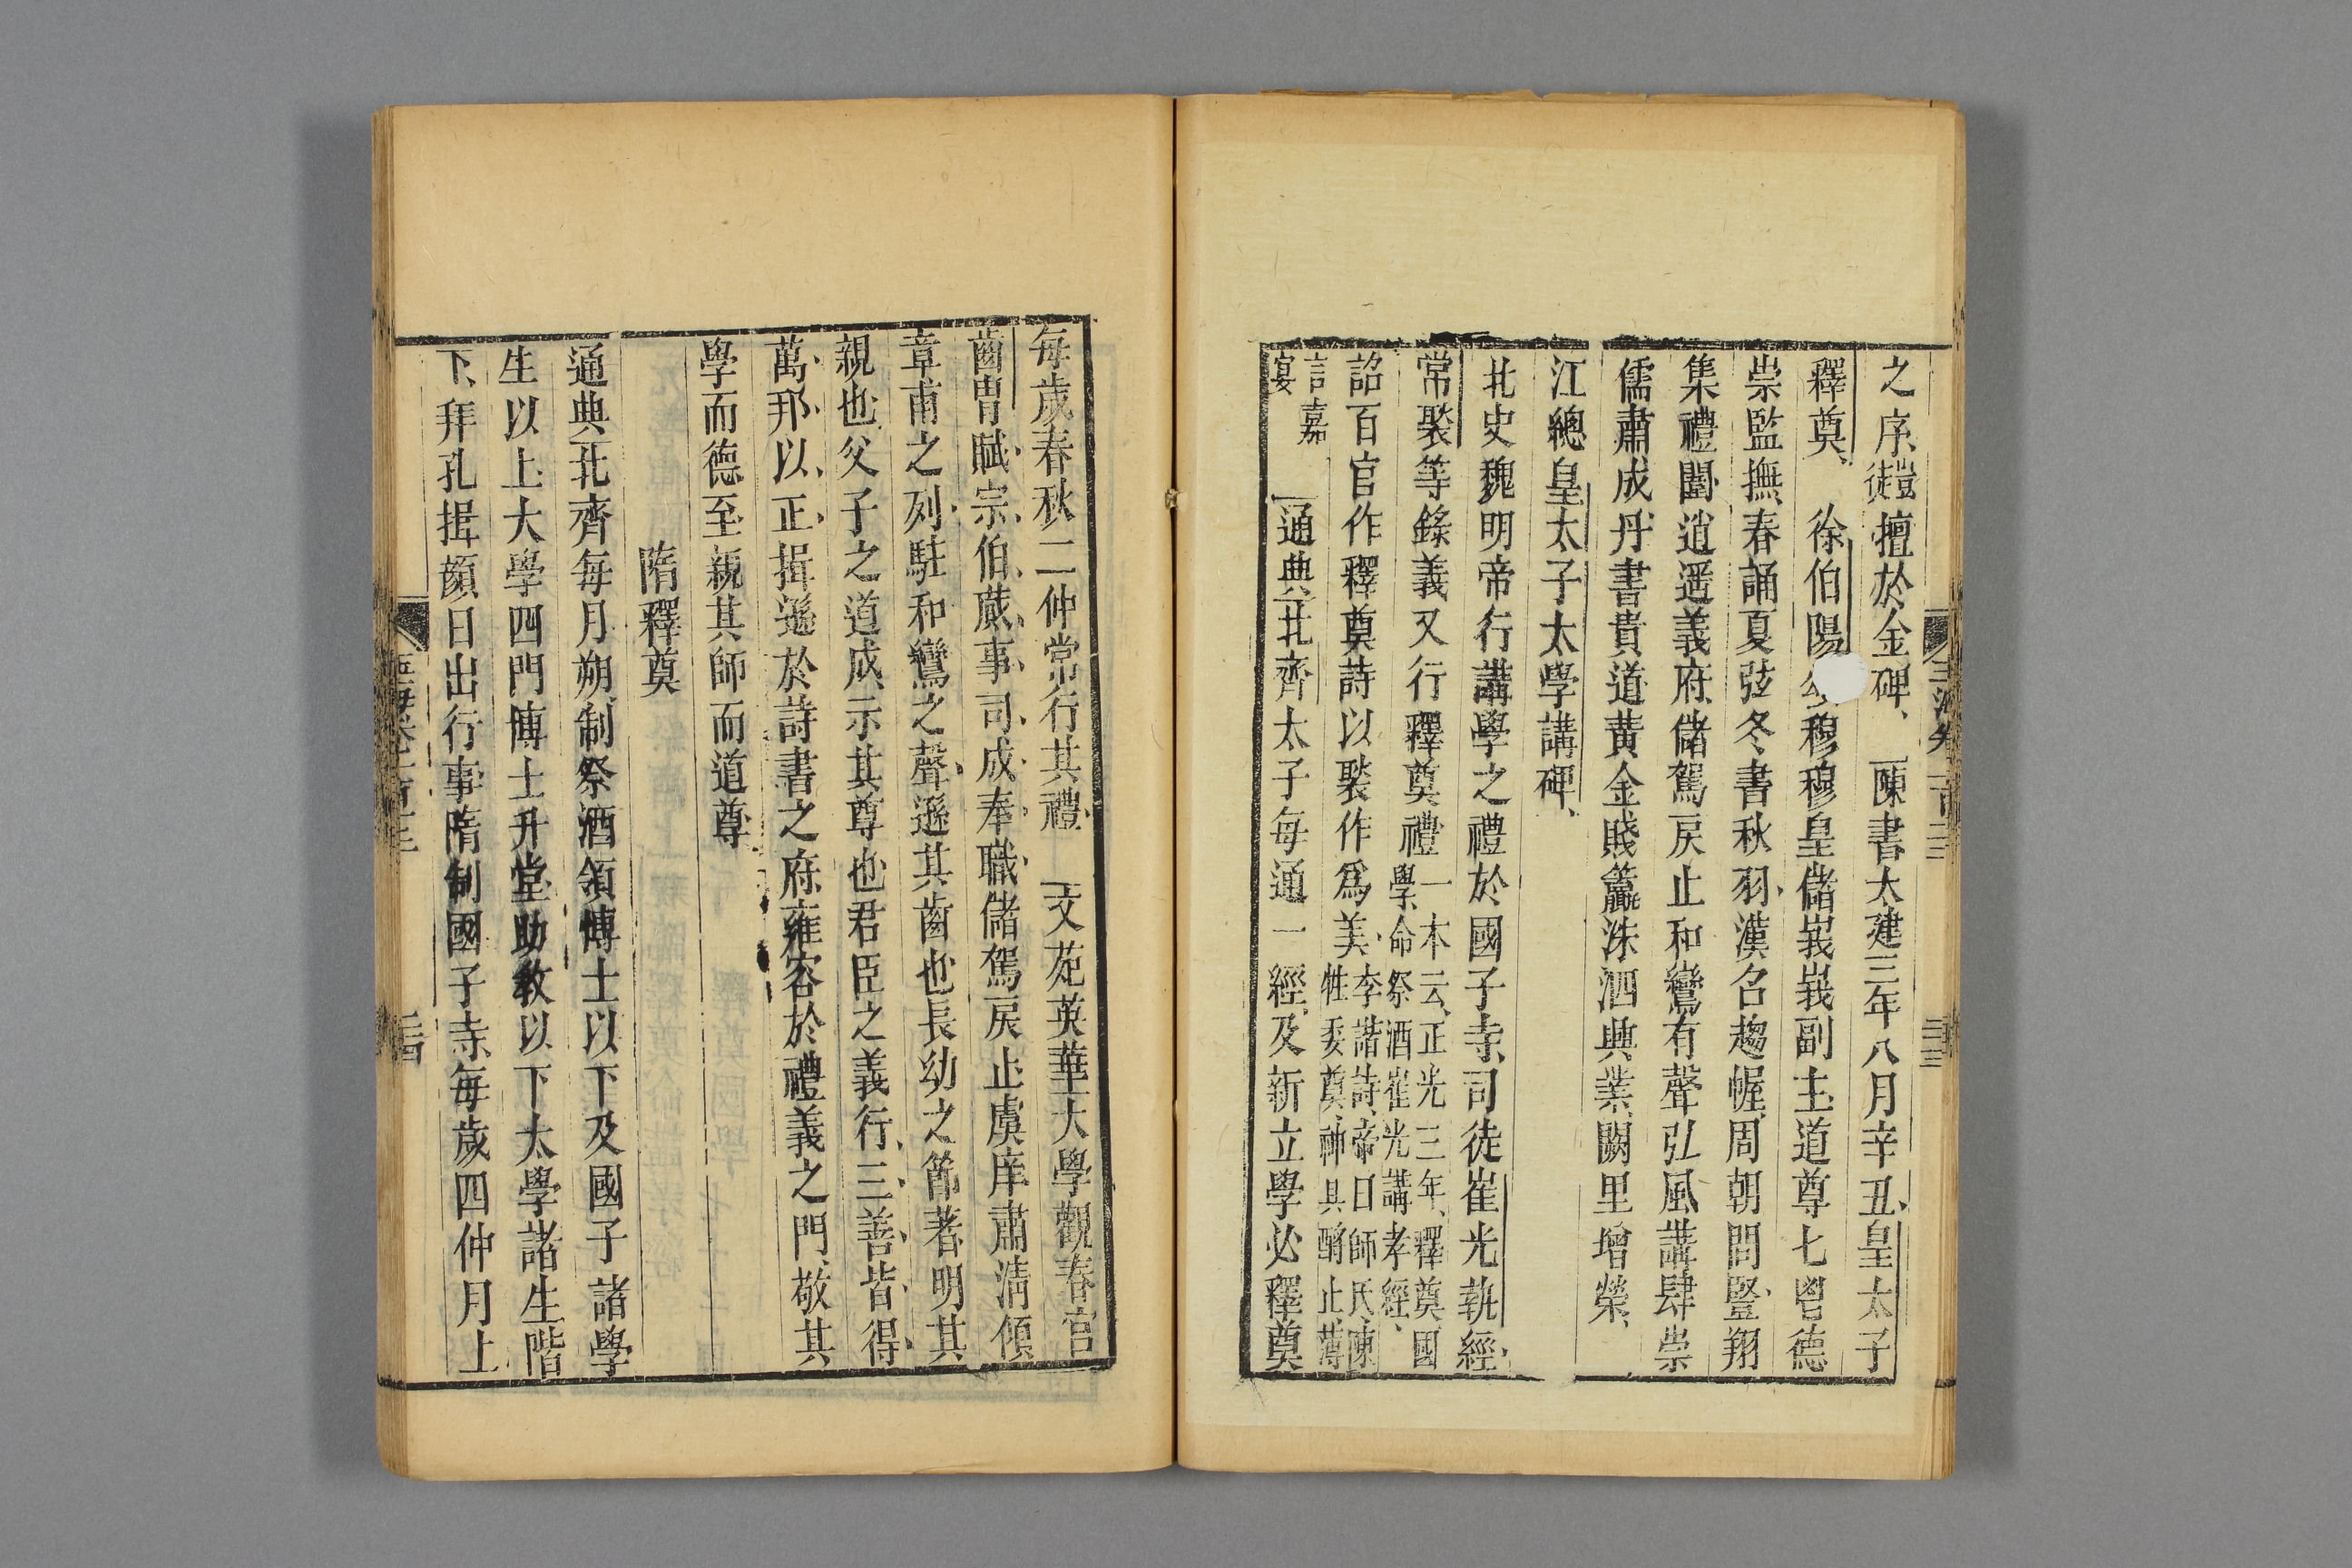 之序愷徙擅於金碑陳書太建三年八月辛丑皇太子
釋奠徐伯陽穆穆皇儲峩峩副主道尊七鬯德
崇監撫春誦夏弦冬書秋羽漢名趨幄周朝問豎翔
集禮闈逍遥義府儲駕戾止和鸞有聲弘風講肆崇
儒肅成丹書貴道黄金賤籯洙泗興業闕里增榮
江總皇太子太學講碑
北史魏明帝行講學之禮於國子寺司徒崔光執經
常裴等錄義又行釋奠禮一本云正光三年釋奠國
學命祭酒崔光講孝經
詔百官作釋奠詩以裴作爲美李諧詩帝曰師氏陳
牲委奠神具醉止薄
言嘉
宴
通典北齊太子每通一經及新立學必釋奠
每歲春秋二仲常行其禮文苑英華大學觀春官
齒胄賦宗伯蕆事司成奉職儲駕戾止虞庠肅清傾
章甫之列駐和鸞之聲遜其齒也長幼之節著明其
親也父子之道成示其尊也君臣之義行三善皆得
萬邦以正揖遜於詩書之府雍容於禮義之門敬其
學而德至親其師而道尊
隋釋奠
通典北齊每月朔制祭酒領博士以下及國子諸學
生以上大學四門博士升堂助教以下太學諸生階
下拜孔揖顔日出行事隋制國子寺每歲四仲月上